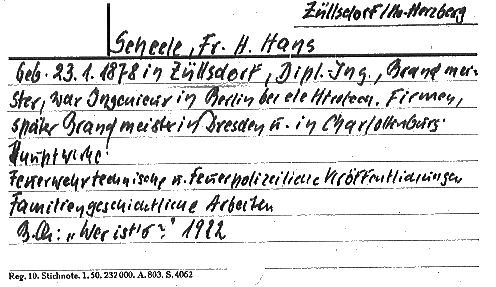 Züllsdorf/Kr. Herzberg
Scheele, Fr. H. Hans
geb. 23.1.1878 in Züllsdorf, Dipl. Ing., Brandmei-
ster, war Ingenieur in Berlin bei elektrotechn. Firmen,
später Brandmeister in Dresden u. in Charlottenburg.
Hauptwerke:
Feuerwehrtechnische u. feuerpolizeiliche Veröffentlichungen
Familiengeschichtliche Arbeiten
B.Qu.: „Wer ist's?" 1922
Reg. 10. Stichnote. 1. 50. 232000. A. 803. S. 4062